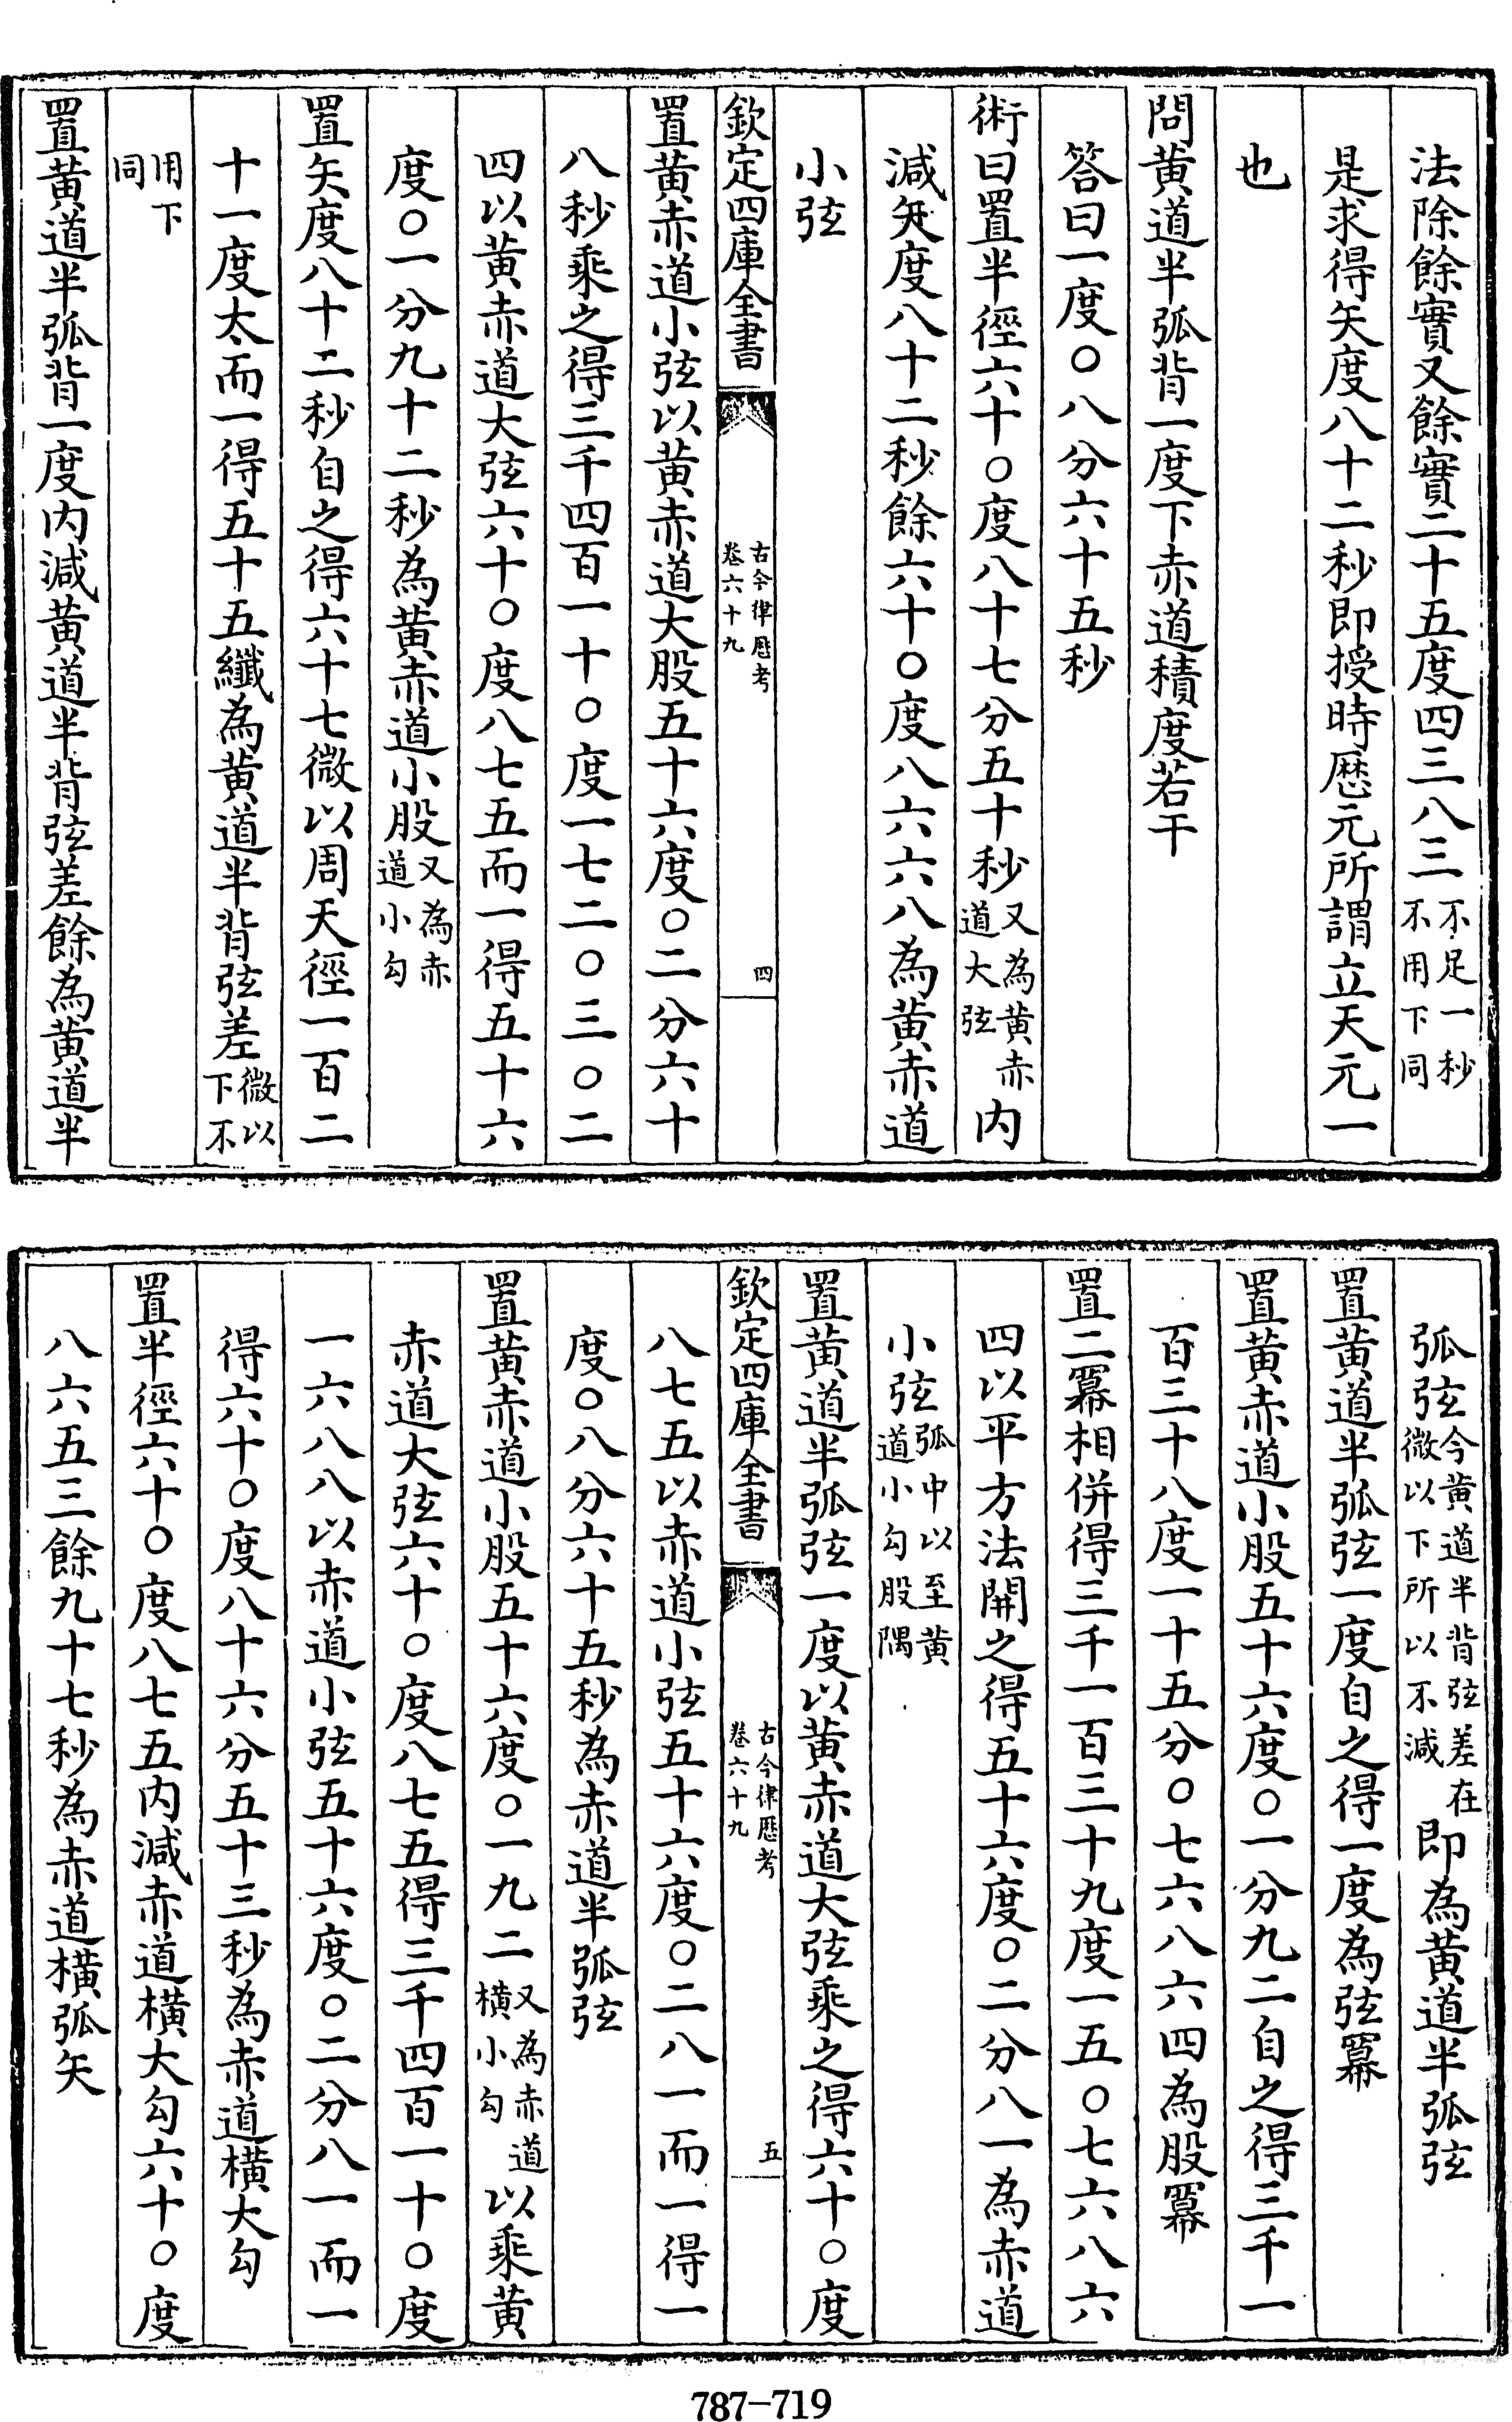 法除餘實又餘實二十五度四三八三不足一秒不用下同
是求得矢度八十二秒即授時厯元所謂立天元一
也
問黄道半弧背一度下赤道積度若干
答曰一度〇八分六十五秒
術曰置半徑六十〇度八十七分五十秒又為黄赤道大弦内
減矢度八十二秒餘六十〇度八六六八為黄赤道
小弦
欽定四庫全書
古今律厯考
卷六十九
四
置黄赤道小弦以黄赤道大股五十六度〇二分六十
八秒乘之得三千四百一十〇度一七二〇三〇二
四以黄赤道大弦六十〇度八七五而一得五十六
度〇一分九十二秒為黄赤道小股又為赤道小勾
置矢度八十二秒自之得六十七微以周天徑一百二
十一度太而一得五十五纖為黄道半背弦差微以下不
用下同
置黄道半弧背一度内減黄道半背弦差餘為黄道半
弧弦今黄道半背弦差在微以下所以不減即為黄道半弧弦
置黄道半弧弦一度自之得一度為弦冪
置黄赤道小股五十六度〇一分九二自之得三千一
百三十八度一十五分〇七六八六四為股冪
置二冪相併得三千一百三十九度一五〇七六八六
四以平方法開之得五十六度〇二分八一為赤道
小弦弧中以至黄道小勾股隅
置黄道半弧弦一度以黄赤道大弦乘之得六十〇度
欽定四庫全書
古今律厯考
卷六十九
五
八七五以赤道小弦五十六度〇二八一而一得一
度〇八分六十五秒為赤道半弧弦
置黄赤道小股五十六度〇一九二又為赤道橫小勾以乘黄
赤道大弦六十〇度八七五得三千四百一十〇度
一六八八以赤道小弦五十六度〇二分八一而一
得六十〇度八十六分五十三秒為赤道橫大勾
置半徑六十〇度八七五内減赤道橫大勾六十〇度
八六五三餘九十七秒為赤道橫弧矢
787-719